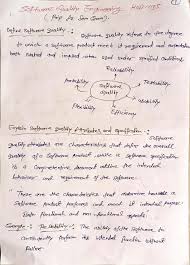 Software Quality Engineering
Define Software Quality :- Software quality refers to the degree
to which a software product meet it requirement and
both stated and implied when used under specified conditions.
Reliability
Portability
Testability
Software
Quality
Flexibility
Usability
Efficiency
Explain Software Quality Attributes and Specification :- Software
quality attributes are characteristics that define the overall
quality of a Software product while a software specification
is a Comprehensive document outline the intended
behaviour and requirement of the software.
These are the characteristics that determine how a
Software product performs and meet it intended purpose.
functional and non-functional aspects.
Example - Reliability :- The ability of the Software to
consistently perform its intended function without
failure.